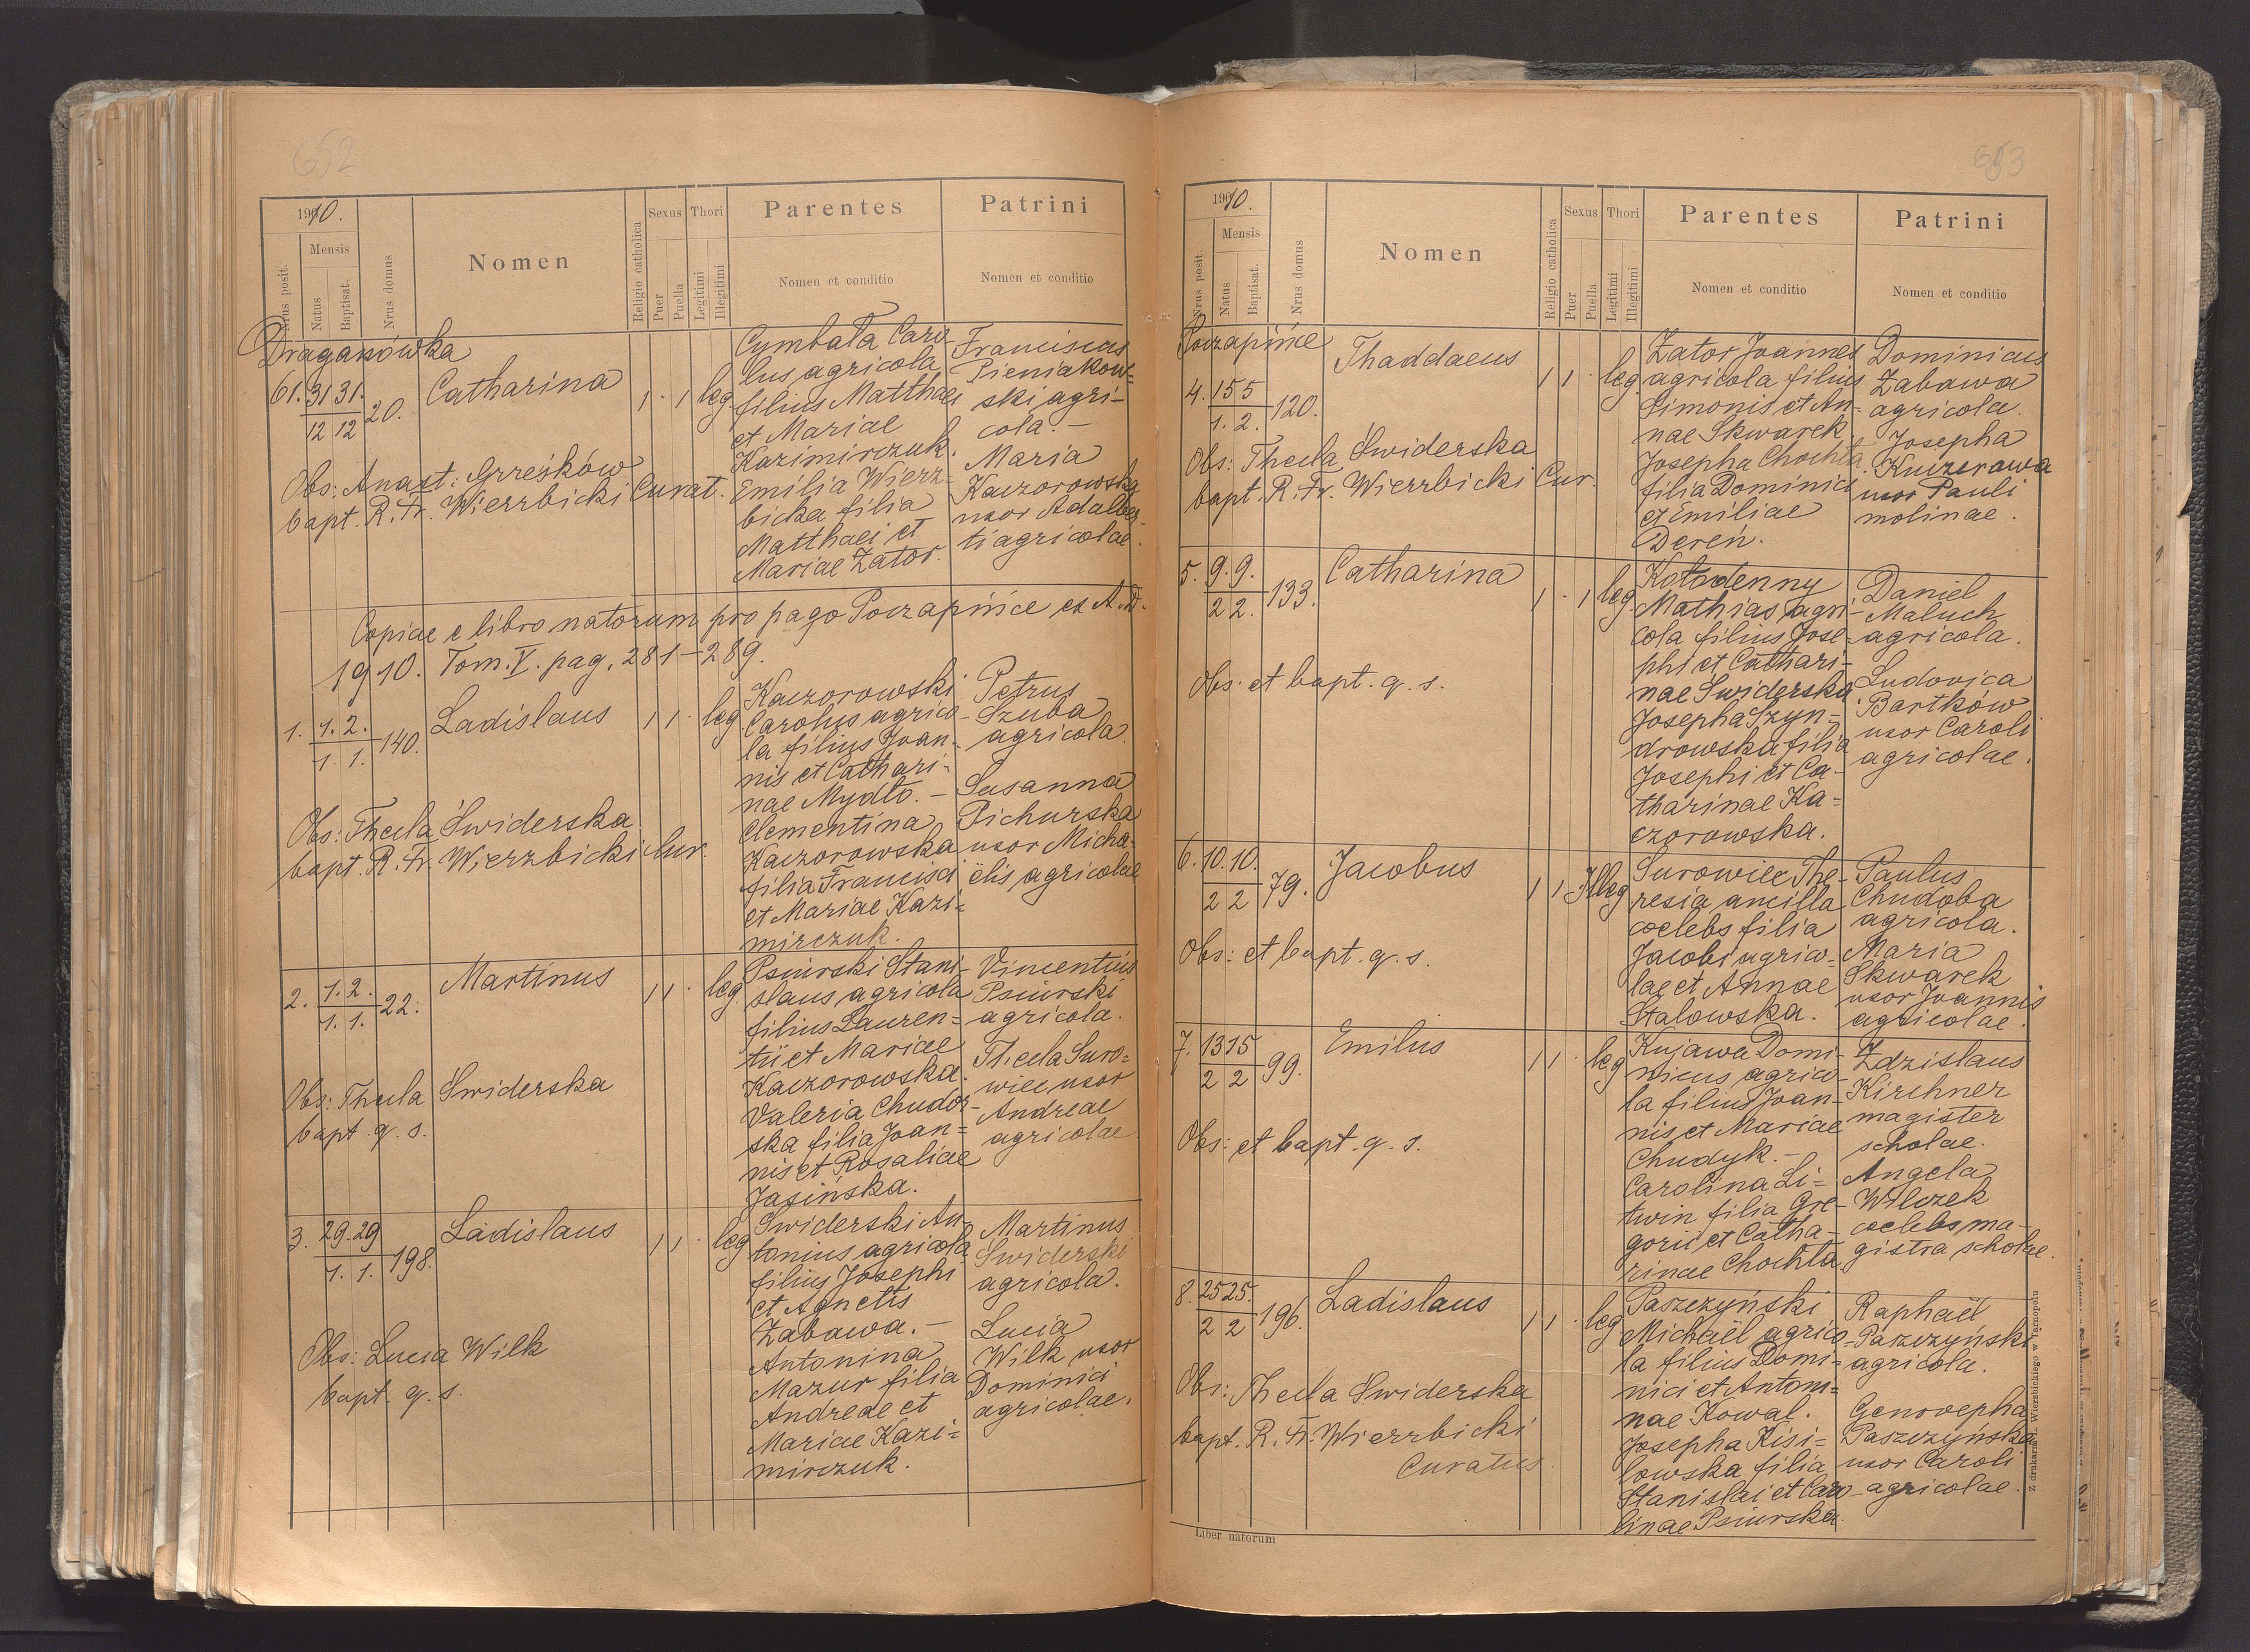 652
1910.
Mensis
Nrus posit.
Natus
Baptisat.
Nrus domus
Nomen
Religio catholica
Sexus
Puer
Puella
Thori
Legitimi
Illegitimi
Parentes
Nomen et conditio
Patrini
Nomen et conditio
Draganówka
61. 31 31.
12 12
20.
Catharina
1 . 1 leg.
Cymbała Caro-
lus agricola
filius Matthaei
et Mariae
Kazimirczuk.
Emilia Wierz-
bicka filia
Matthaei et
Mariae Zator.
Franciscus
Pieniakow=
ski agri-
cola. -
Maria
Kaczorowska
uxor Adalber-
ti agricolae.
Obs: Anast: Grześków
bapt. R. Fr. Wierzbicki Curat.
Copiae e libro natorum pro pago Poczapińce ex A.D.
1910. Tom. V. pag. 281-289.
1. 1. 2.
1. 1.
140.
Ladislaus
1 1 . leg
Kaczorowski
Carolus agrico-
la filius Joan-
nis et Cathari-
nae Mydło. -
Clementina
Kaczorowska
filia Francisci
et Mariae Kazi=
mirczuk.
Petrus
Szuba
agricola
Susanna
Pichurska
uxor Micha-
ëlis agricolae
Obs: Thecla Świderska
bapt. R. Fr. Wierzbicki Cur.
2. 1. 2.
1. 1.
22.
Martinus
1 1 . leg.
Psiurski Stani-
slaus agricola
filius Lauren=
tii et Mariae
Kaczorowska.
Valeria Chudor-
ska filia Joan=
nis et Rosaliae
Jasińska.
Vincentius
Psiurski
agricola.
Thecla Suro=
wiec uxor
Andreae
agricolae
Obs: Thecla Świderska
bapt. q. s.
3. 29. 29
1. 1.
198.
Ladislaus
1 1 . leg
Świderski An-
tonius agricola
filius Josephi
et Agnetis
Zabawa. -
Antonina
Mazur filia
Andreae et
Mariae Kazi=
mirczuk.
Martinus
Swiderski
agricola.
Lucia
Wilk uxor
Dominici
agricolae.
Obs: Lucia Wilk
bapt. q. s.
653
1910.
Mensis
Nrus posit.
Natus
Baptisat.
Nrus domus
Nomen
Religio catholica
Sexus
Puer
Puella
Thori
Legitimi
Illegitimi
Parentes
Nomen et conditio
Patrini
Nomen et conditio
Poczapińce
4. 15 5
1. 2.
120.
Thaddaeus
1 1 . leg.
Zator Joannes
agricola filius
Simonis et An-
nae Skwarek
Josepha Chochła
filia Dominici
et Emiliae
Dereń.
Dominicus
Zabawa
agricola.
Josepha
Kuczerawa
uxor Pauli
molinae.
Obs: Thecla Świderska
bapt. R. Fr. Wierzbicki Cur.
5. 9. 9.
2 2.
133.
Catharina
1 . 1 leg
Kołodenny
Mathias agri-
cola filius Jose-
phi et Cathari-
nae Świderska
Josepha Szyn=
drowska filia
Josephi et Ca-
tharinae Ka=
czorowska.
Daniel
Maluch
agricola.
Ludovica
Bartków
uxor Caroli
agricolae.
Obs: et bapt. q. s.
6. 10. 10.
2 2
79.
Jacobus
1 1 Illeg
Surowiec The-
resia ancilla
coelebs filia
Jacobi agrico=
lae et Annae
Stalowska.
Paulus
Chudoba
agricola.
Maria
Skwarek
uxor Joannis
agricolae.
Obs: et bapt. q. s.
7. 13 15
2 2
99.
Emilus
1 1 . leg
Kujawa Domi-
nicus agrico-
la filius Joan-
nis et Mariae
Chudyk. -
Carolina Li=
twin filia Gre-
gorii et Catha-
rinae Chochła.
Zdzislaus
Kirchner
magister
scholae.
Angela
Wilczek
coelebs ma-
gistra scholae.
Obs: et bapt. q. s.
8. 25 25.
2 2
196.
Ladislaus
1 1 . leg
Paszczyński
Michaël agrico-
la filius Domi=
nici et Antoni=
nae Kowal.
Josepha Kisi=
lowska filia
Stanislai et Caro-
linae Psiurska.
Raphaël
Paszczyński
agricola.
Genovepha
Paszczyńska
uxor Caroli
agricolae.
Obs: Thecla Świderska
bapt. R. Fr. Wierzbicki
Curatus.
Liber natorum
Z drukarni Wierzbickiego w Tarnopolu